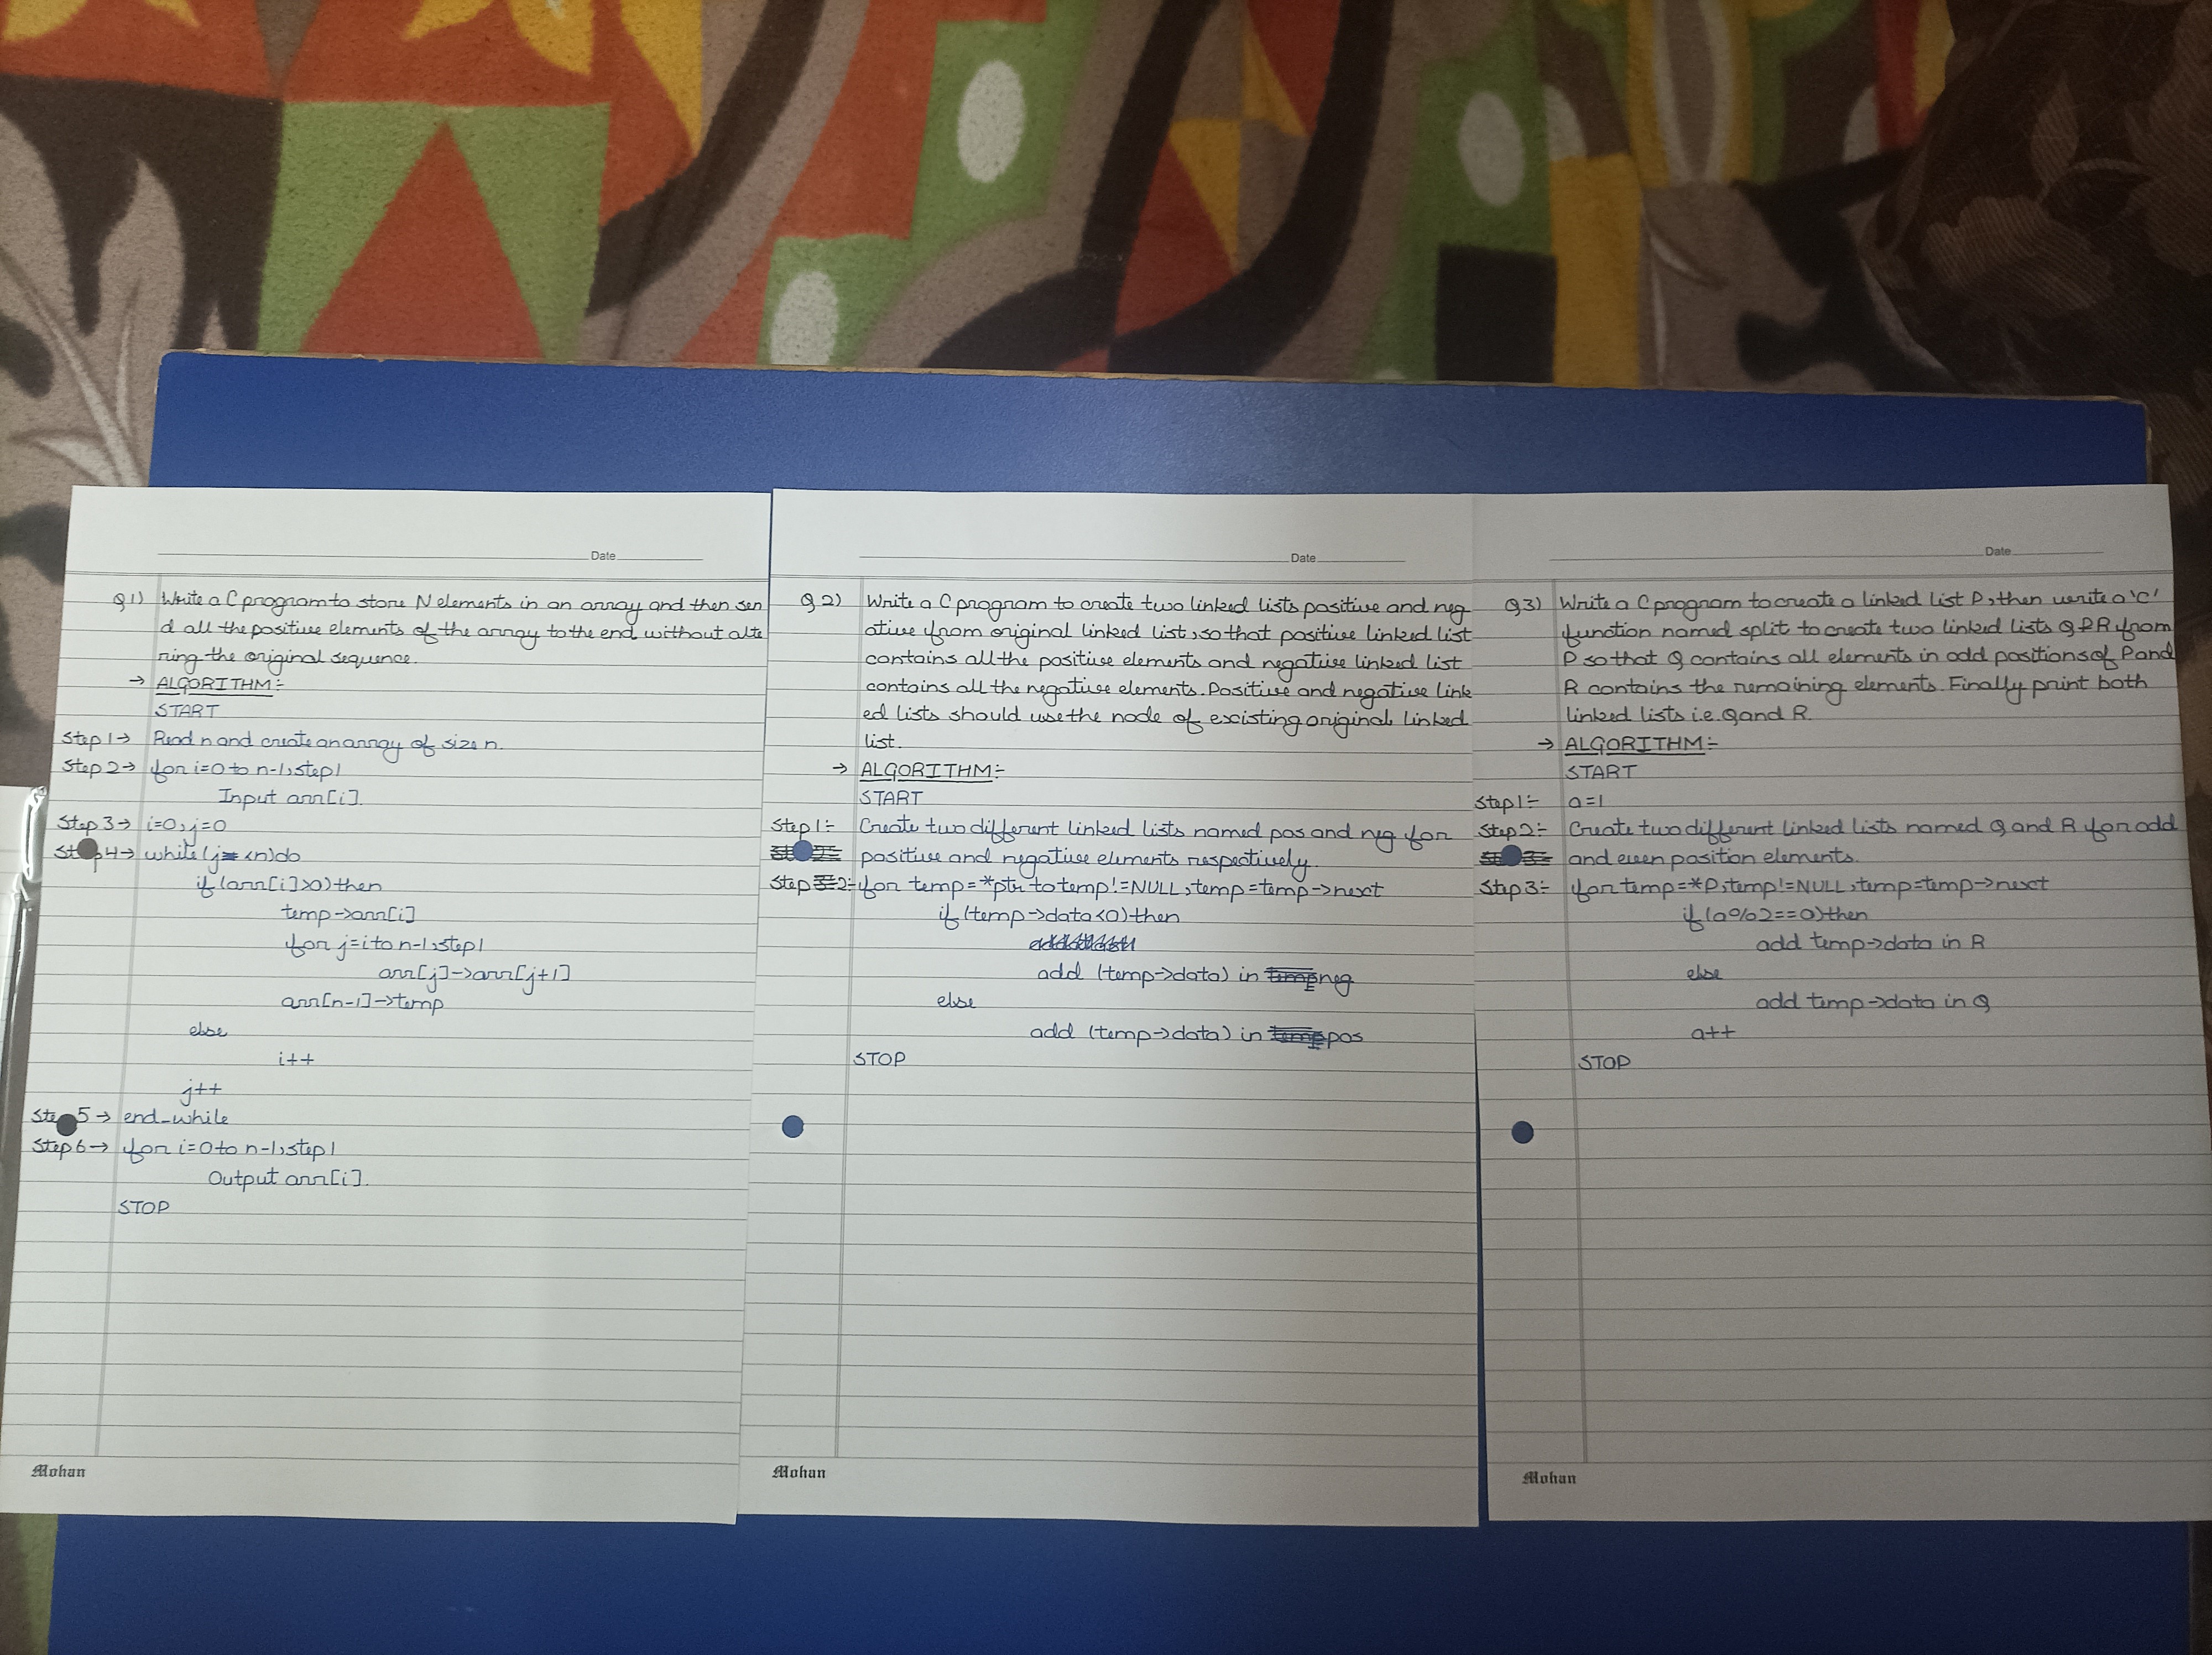 Date
Q1) Write a C program to store N elements in an array and then sen
d all the positive elements of the array to the end without alte
ring the original sequence.
→ ALGORITHM:-
START
Step 1→ Read n and create an array of size n.
Step 2→ for i=0 to n-1, step 1
Input arr[i].
Step 3→ i=0, j=0
Step 4→ while (j < n) do
if (arr[i]>0) then
temp→arr[i]
for j=i to n-1, step 1
arr[j]→arr[j+1]
arr[n-1]→temp
else
i++
j++
Step 5→ end_while
Step 6→ for i=0 to n-1, step 1
Output arr[i].
STOP
Mohan
Date
Q2) Write a C program to create two linked lists positive and neg
ative from original linked list, so that positive linked list
contains all the positive elements and negative linked list
contains all the negative elements. Positive and negative link
ed lists should use the node of excisting original linked
list.
→ ALGORITHM:-
START
Step 1:- Create two different linked lists named pos and neg for
positive and negative elements respectively.
Step 2:- for temp=*ptr to temp!=NULL, temp=temp->next
if (temp->data<0) then
add (temp->data) in neg
else
add (temp->data) in pos
STOP
Mohan
Date
Q3) Write a C program to create a linked list P, then write a 'C'
function named split to create two linked lists Q & R from
P so that Q contains all elements in odd positions of P and
R contains the remaining elements. Finally print both
linked lists i.e. Q and R.
→ ALGORITHM:-
START
Step 1:- a=1
Step 2:- Create two different linked lists named Q and R for odd
and even position elements.
Step 3:- for temp=*P, temp!=NULL, temp=temp->next
if (a%2==0) then
add temp->data in R
else
add temp->data in Q
a++
STOP
Mohan